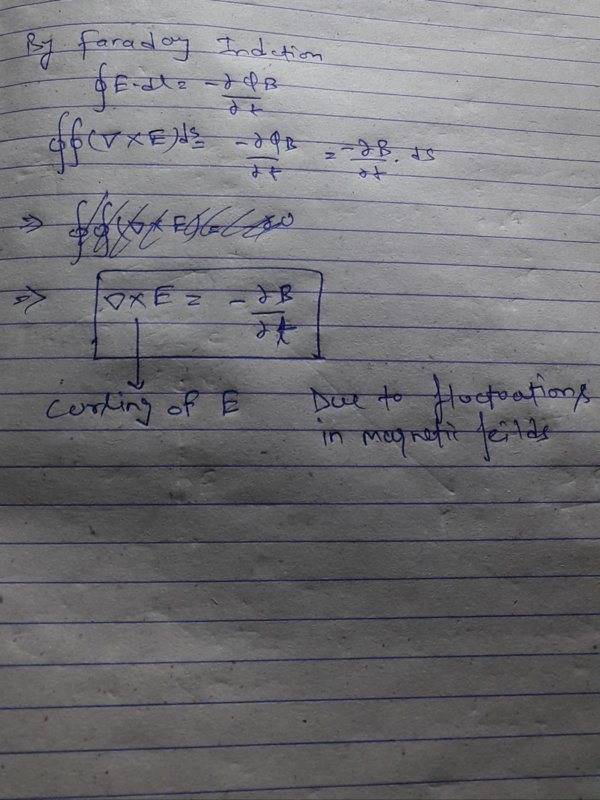 By Faraday Indction
∮E·dl = -∂ΦB/∂t
∯(∇×E)ds = -∂ΦB/∂t = -∂B/∂t · ds
⇒
⇒ ∇×E = -∂B/∂t
Curling of E Due to fluctuations
in magnetic feilds